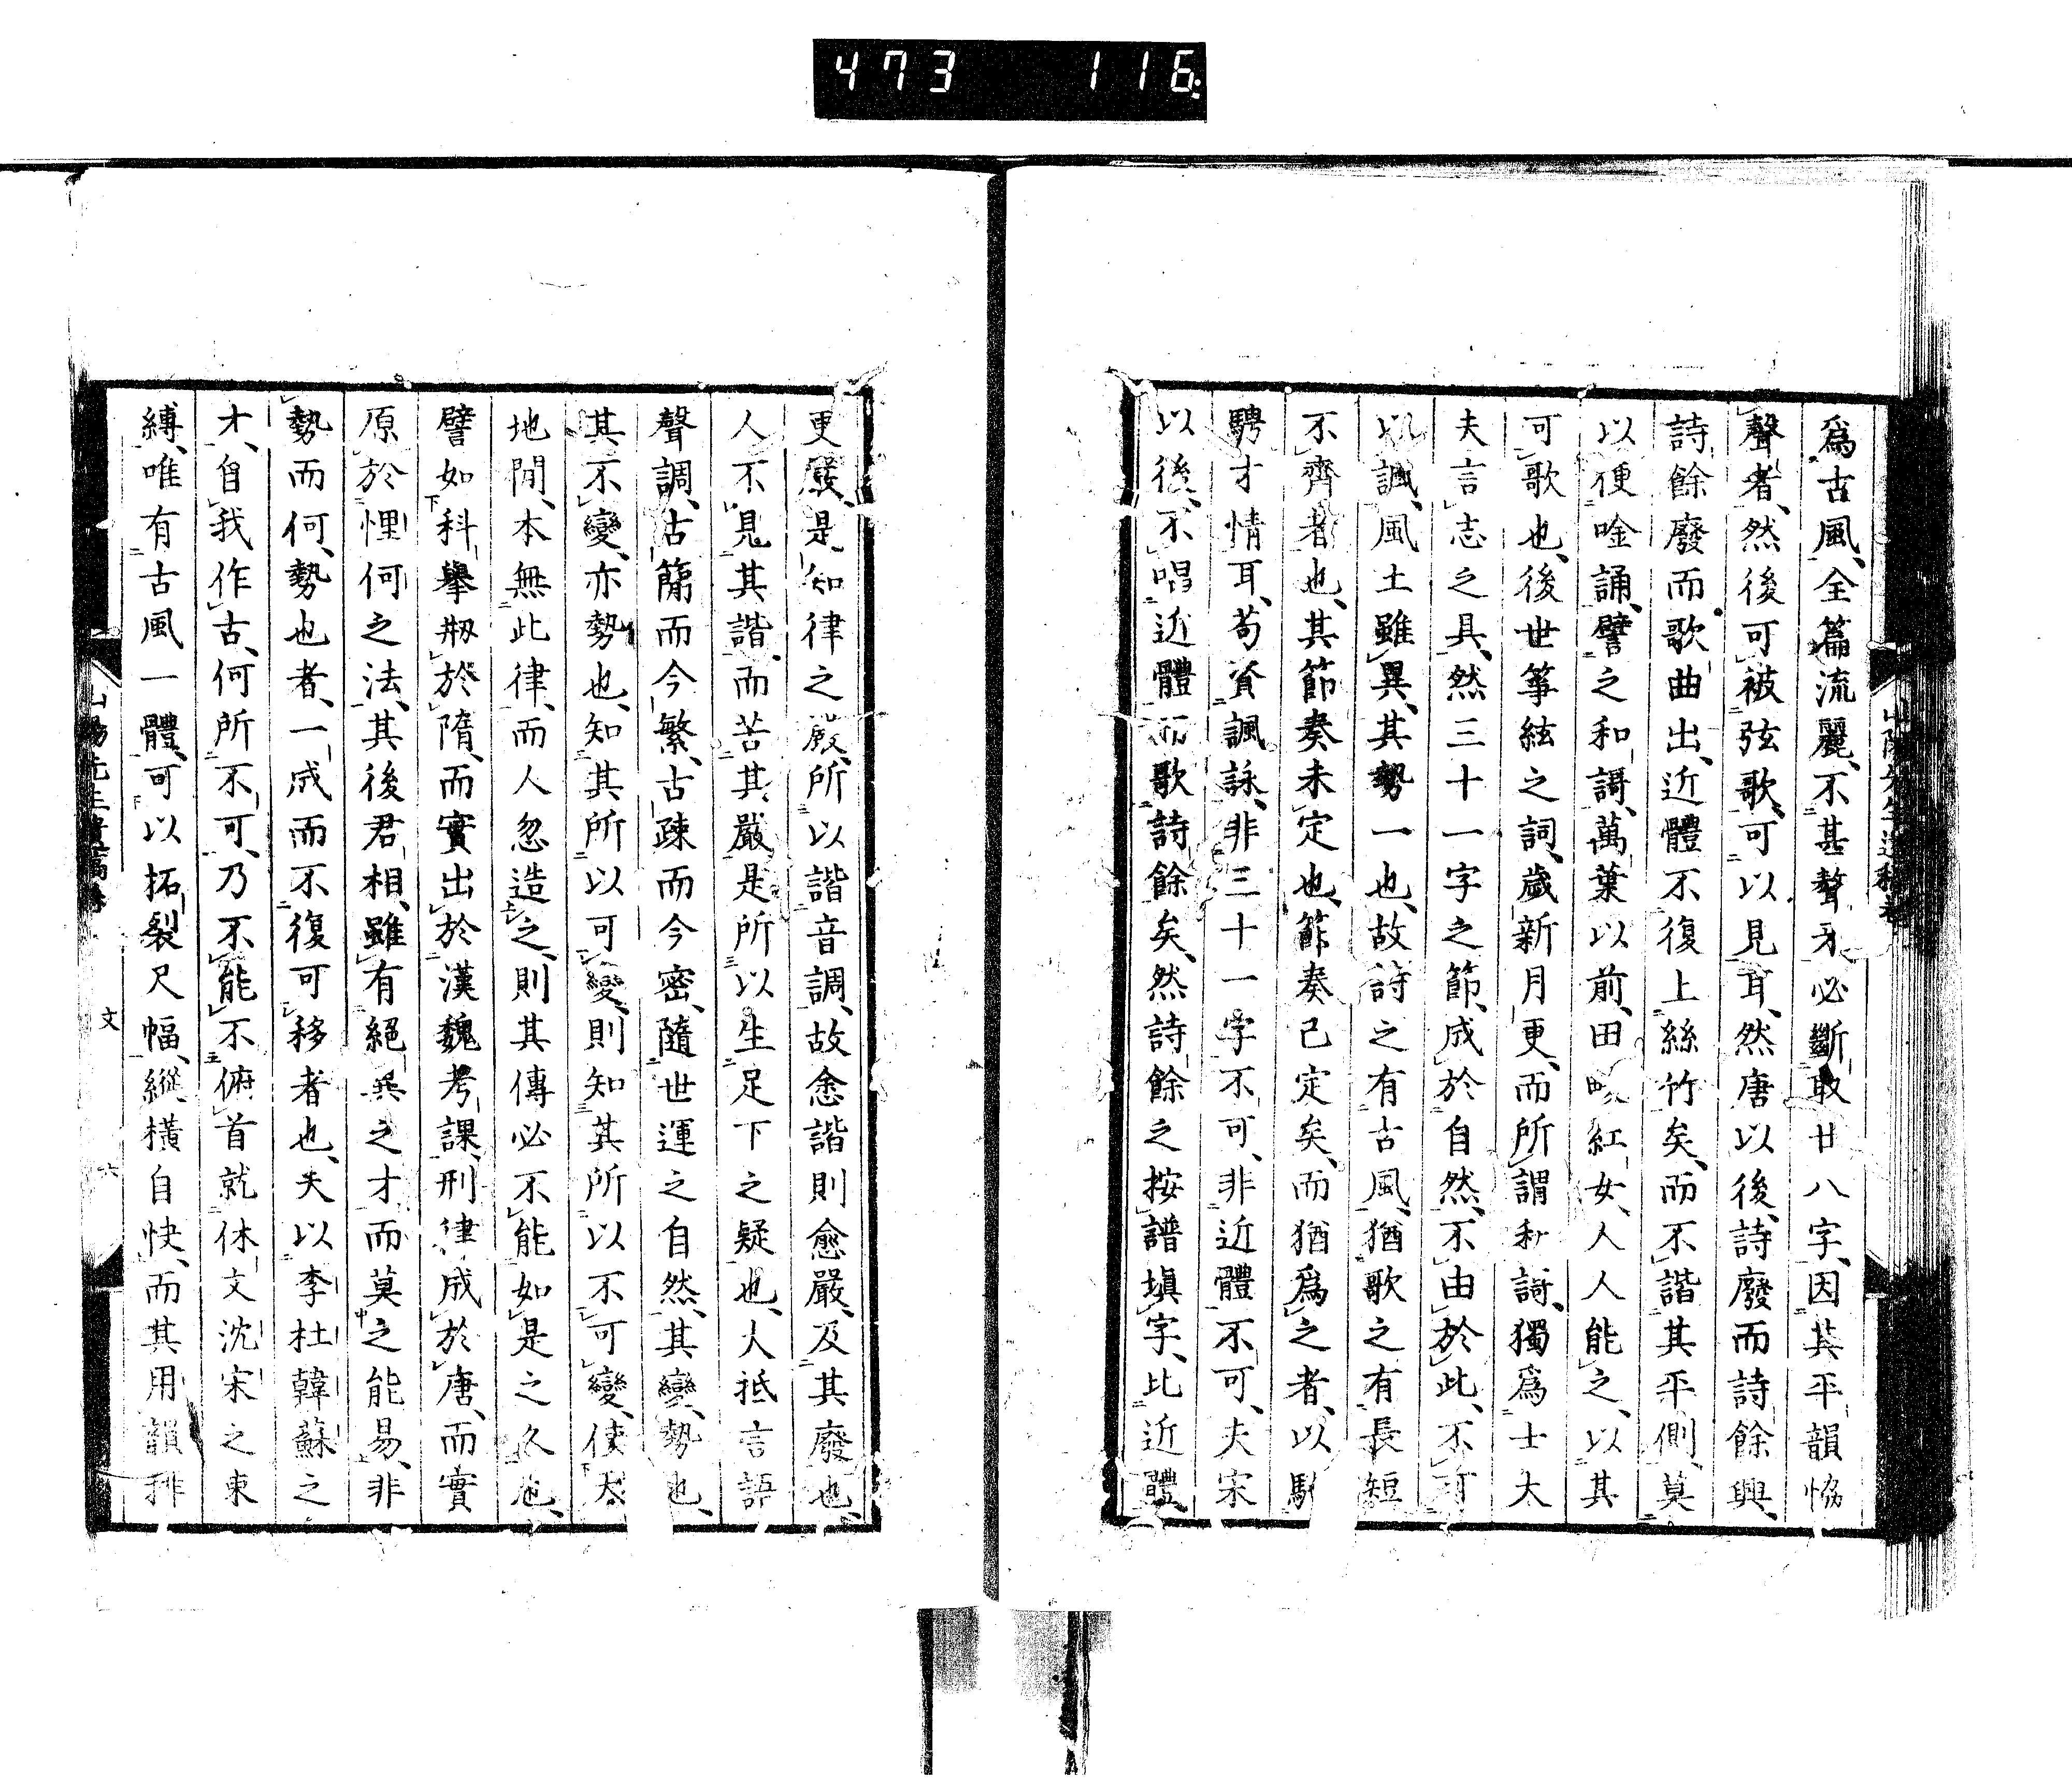 473 116
爲古風、全篇流麗、不甚聱牙、必斷取廿八字、因其平韻恊
聲者、然後可被弦歌、可以見耳、然唐以後、詩廢而詩餘興、
詩餘廢而歌曲出、近體不復上絲竹矣、而不諧其平側、莫
以便唫誦、譬之和謌、萬葉以前、田畯紅女、人人能之、以其
可歌也、後世箏絃之詞、歲新月更、而所謂和謌、獨爲士大
夫言志之具、然三十一字之節、成於自然、不由於此、不可
以諷、風土雖異、其勢一也、故詩之有古風、猶歌之有長短
不齊者也、其節奏未定也、節奏已定矣、而猶爲之者、以馳
騁才情耳、苟資諷詠、非三十一字不可、非近體不可、夫宋
以後、不唱近體而歌詩餘矣、然詩餘之按譜塡字、比近體、
更嚴、是知律之嚴、所以諧音調、故愈諧則愈嚴、及其廢也、
人不見其諧、而苦其嚴、是所以生足下之疑也、大抵言語
聲調、古簡而今繁、古疎而今密、隨世運之自然、其變、勢也、
其不變、亦勢也、知其所以可變、則知其所以不可變、使天
地閒、本無此律、而人忽造之、則其傳必不能如是之久也、
譬如科擧剏於隋、而實出於漢魏考課、刑律成於唐、而實
原於悝何之法、其後君相、雖有絕異之才而莫之能易、非
勢而何、勢也者、一成而不復可移者也、夫以李杜韓蘇之
才、自我作古、何所不可、乃不能不俯首就休文沈宋之束
縛、唯有古風一體、可以拓裂尺幅、縱橫自快、而其用韻排
山陽先生遺稿 文 六